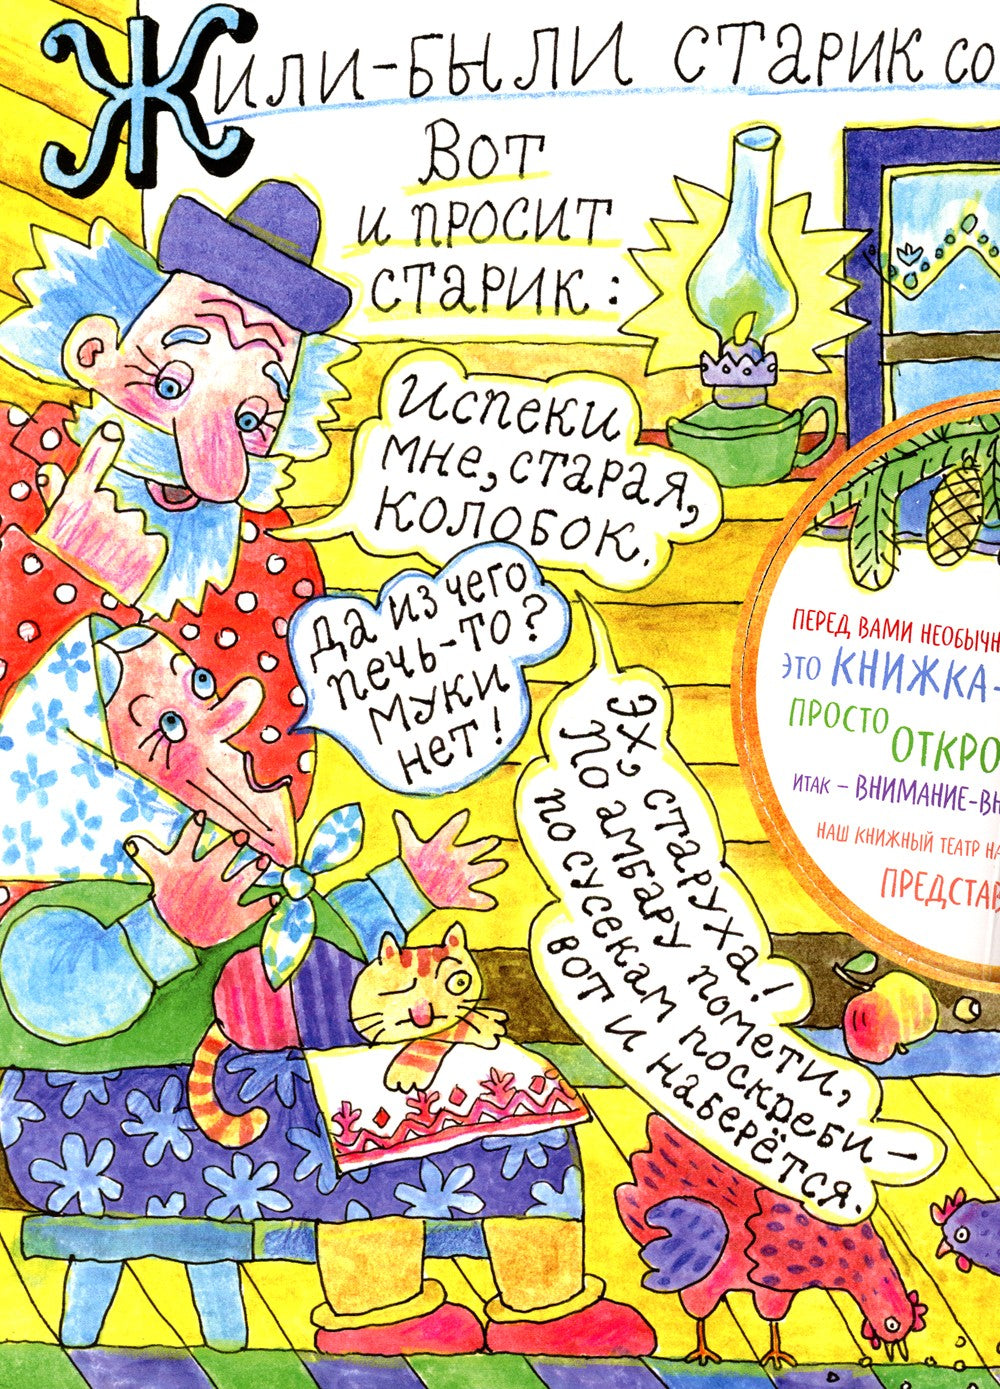 Жили-были старик со
Вот
и просит
старик:
Испеки
мне, старая,
колобок.
Да из чего
печь-то?
Муки
нет!
Эх, старуха!
По амбару помети,
по сусекам поскреби —
вот и наберётся.
ПЕРЕД ВАМИ НЕОБЫЧН
ЭТО КНИЖКА-
ПРОСТО ОТКРО
ИТАК – ВНИМАНИЕ-ВН
НАШ КНИЖНЫЙ ТЕАТР НА
ПРЕДСТАВ